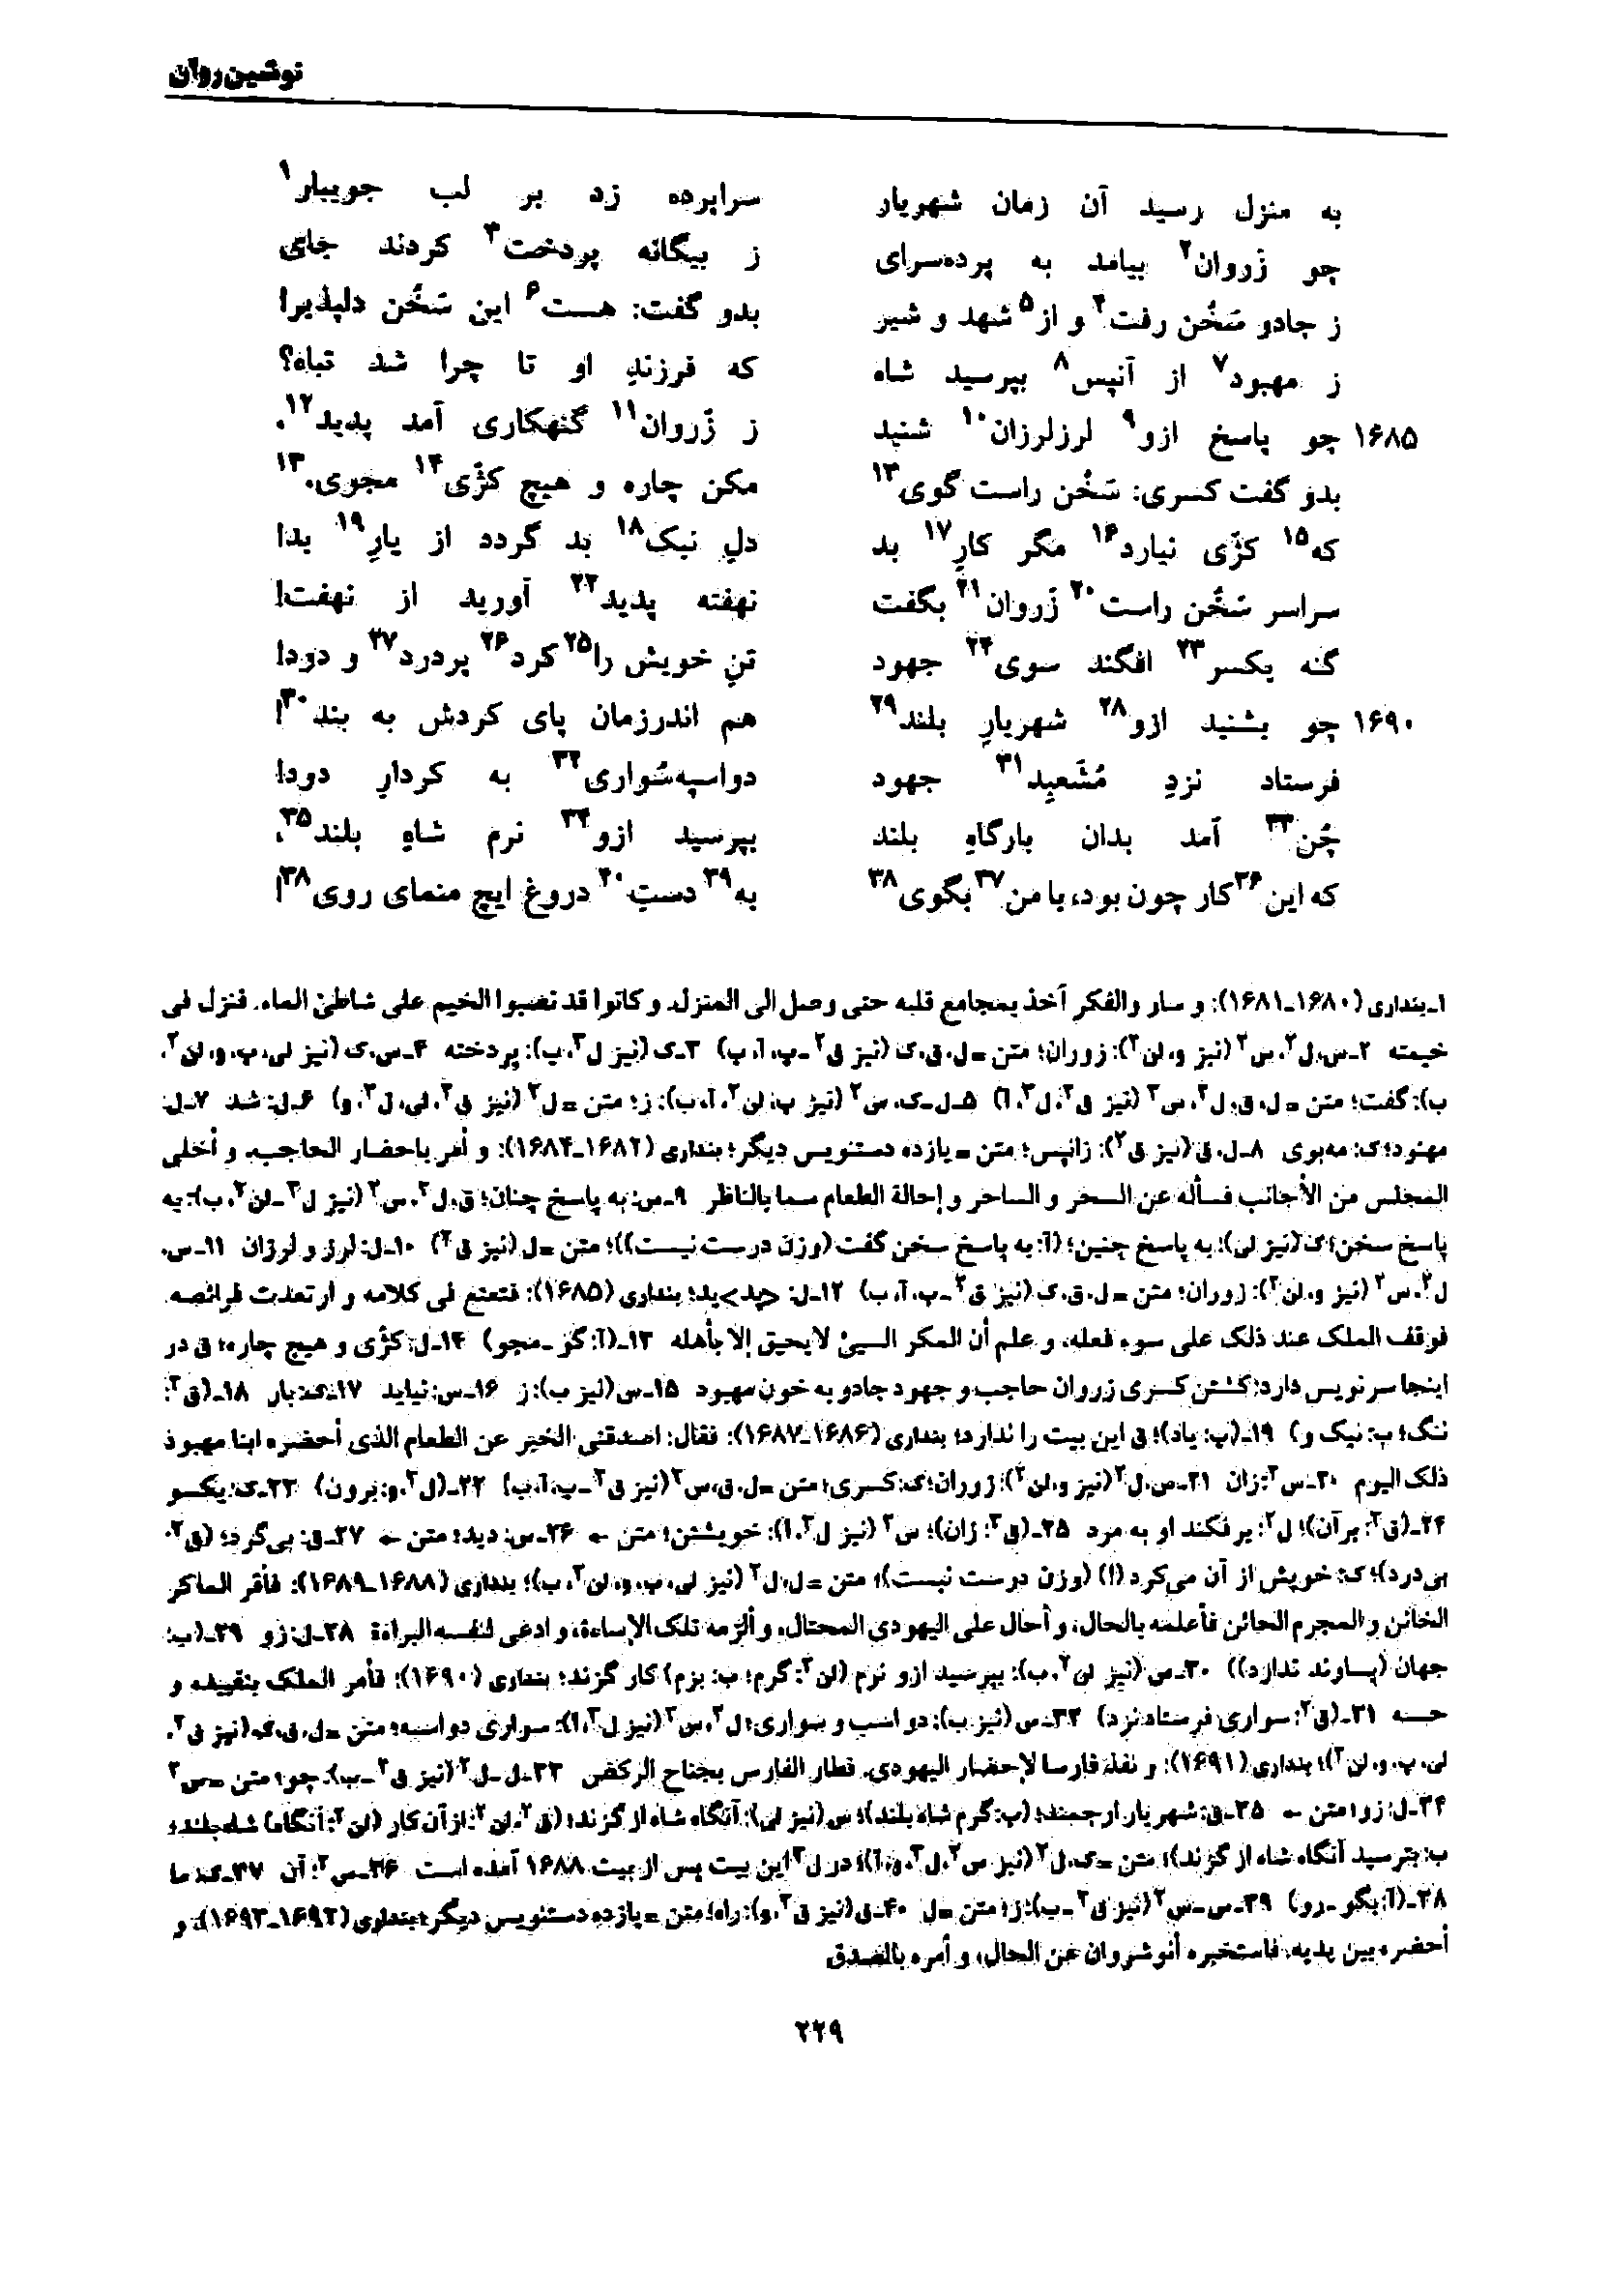 نوشین‌روان
به منزل رسید آن زمان شهریار سراپرده زد بر لب جویبار۱
چو زَروان۲ بیامد به پرده‌سرای ز بیگانه پردخت۳ کردند جای
ز جادو سَخُن رفت۴ و از۵ شهد و شیر بدو گفت: هست۶ این سَخُن دلپذیر!
ز مهبود۷ از آنپس۸ بپرسید شاه که فرزندِ او تا چرا شد تباه؟
۱۶۸۵ چو پاسخ ازو۹ لرزلرزان۱۰ شنید ز زَروان۱۱ گنهکاری آمد پدید۱۲.
بدو گفت کسری: سَخُن راست گوی۱۳ مکن چاره و هیچ کژّی۱۴ مجوی.۱۳
که۱۵ کژّی نیارد۱۶ مگر کارِ۱۷ بد دلِ نیک۱۸ بد گردد از یارِ۱۹ بد!
سراسر سَخُن راست۲۰ زَروان۲۱ بگفت نهفته پدید۲۲ آورید از نهفت!
گنه یکسر۲۳ افگند سوی۲۴ جهود تنِ خویش را۲۵ کرد۲۶ پردرد۲۷ و دود!
۱۶۹۰ چو بشنید ازو۲۸ شهریارِ بلند۲۹ هم اندرزمان پای کردش به بند۳۰!
فرستاد نزدِ مُشَعبِد۳۱ جهود دواسپه‌سُواری۳۲ به کردارِ دود!
چُن۳۳ آمد بدان بارگاهِ بلند بپرسید ازو۳۴ نرم شاهِ بلند۳۵،
که این۳۶ کار چون بود، با من۳۷ بگوی۳۸ به۳۹ دستِ۴۰ دروغ ایچ منمای روی۳۸!
۱ـ بنداری (۱۶۸۰ـ۱۶۸۱): و سار والفکر آخذ بمجامع قلبه حتی وصل الی المنزل، و کانوا قد نصبوا الخیم علی شاطئ الماء. فنزل فی
خیمته ۲ـ س، ل۲، س۲ (نیز و، لن۲): زوران؛ متن = ل، ق، ک (نیز ق۲ ـ پ، آ، ب) ۳ـ ک (نیز ل۳، ب): پردخته ۴ـ س، ک (نیز لی، پ، و، لن۲،
ب): گفت؛ متن = ل، ق، ل۲، س۲ (نیز ق۲، ل۳، آ) ۵ـ ل ـ ک، س۲ (نیز پ، لن۲، آ، ب): ز؛ متن = ل۲ (نیز ق۲، لی، ل۳، و) ۶ـ ل: شد ۷ـ ل:
مهنود؛ ک: مه‌بوی ۸ـ ل، ق (نیز ق۲): زانپس؛ متن = یازده دستنویس دیگر؛ بنداری (۱۶۸۲ـ۱۶۸۴): و أمر باحضار الحاجب، و أخلی
المجلس من الأجانب فسأله عن السحر و الساحر و إحالة الطعام سما بالناظر ۹ـ س: به پاسخ چنان؛ ق، ل۲، س۲ (نیز ل۳ ـ لن۲، ب): به
پاسخ سخن؛ ک (نیز لی): به پاسخ چنین؛ (آ: به پاسخ سخن گفت (وزن درست نیست))؛ متن = ل (نیز ق۲) ۱۰ـ ل: لرز و لرزان ۱۱ـ س،
ل۲، س۲ (نیز و، لن۲): زوران؛ متن = ل، ق، ک (نیز ق۲ ـ پ، آ، ب) ۱۲ـ ل: <پد>ید؛ بنداری (۱۶۸۵): فتعتع فی کلامه و ارتعدت فرائصه.
فوقف الملک عند ذلک علی سوء فعله، و علم أن المکر السیئ لایحیق إلا بأهله ۱۳ـ (آ: گو ـ مجو) ۱۴ـ ل: کژی و هیچ چاره؛ ق در
اینجا سرنویس دارد: کشتن کسری زروان حاجب و جهود جادو به خون مهبود ۱۵ـ س (نیز ب): ز ۱۶ـ س: نیاید ۱۷ـ ک: یار ۱۸ـ (ق۲:
تنگ؛ ب: نیک و) ۱۹ـ (پ: یاد)؛ ق این بیت را ندارد؛ بنداری (۱۶۸۶ـ۱۶۸۷): فقال: اصدقنی الخبر عن الطعام الذی أحضره ابنا مهبوذ
ذلک الیوم ۲۰ـ س۲: زان ۲۱ـ س، ل۲ (نیز و، لن۲): زوران؛ ک: کسری؛ متن = ل، ق، س۲ (نیز ق۲ ـ پ، آ، ب) ۲۲ـ (ل۳، و: برون) ۲۳ـ ک: یکسو
۲۴ـ (ق۲: برآن)؛ ل۲: برفکند او به مرد ۲۵ـ (ق۲: زان)؛ س۲ (نیز ل۳، آ): خویشتن؛ متن ← ۲۶ـ س: دید؛ متن ← ۲۷ـ ق: بی‌گرد؛ (ق۲:
بی‌درد)؛ ک: خویش از آن می‌کرد (!) (وزن درست نیست)؛ متن = ل، ل۲ (نیز لی، پ، و، لن۲، ب)؛ بنداری (۱۶۸۸ـ۱۶۸۹): فأقر الماکر
الخائن و المجرم الحائن فأعلمه بالحال، و أحال علی الیهودی المحتال، و ألزمه تلک الإساءة، و ادعی لنفسه البراءة ۲۸ـ ل: زو ۲۹ـ (ب:
جهان (پساوند ندارد)) ۳۰ـ س (نیز لن۲، ب): بپرسید ازو نرم (لن۲: گرم؛ ب: بزم) کار گزند؛ بنداری (۱۶۹۰): فأمر الملک بتقییده و
حبسه ۳۱ـ (ق۲: سواری فرستاد نزد) ۳۲ـ س (نیز ب): دو اسب و سواری؛ ل۲، س۲ (نیز ل۳، آ): سواری دواسبه؛ متن = ل، ق، ک (نیز ق۲،
لی، پ، و، لن۲)؛ بنداری (۱۶۹۱): و نفذ فارسا لإحضار الیهودی. فطار الفارس بجناح الرکض ۳۳ـ ل ـ ل۲ (نیز ق۲ ـ ب): چو؛ متن = س۲
۳۴ـ ل: زو؛ متن ← ۳۵ـ ق: شهریار ارجمند؛ (پ: گرم شاه بلند)؛ س (نیز لی): آنگاه شاه از گزند؛ (ق۲، لن۲: از آن کار (لن۲: آنگاه) شاه بلند؛
ب: بترسید آنگاه شاه از گزند)؛ متن = ک، ل۲ (نیز س۲، ل۳، و، آ)؛ در ل۲ این بیت پس از بیت ۱۶۸۸ آمده است ۳۶ـ س۲: آن ۳۷ـ ک: ما
۳۸ـ (آ: بگو ـ رو) ۳۹ـ س ـ س۲ (نیز ق۲ ـ ب): ز؛ متن = ل ۴۰ـ ق (نیز ق۲، و): راه؛ متن = یازده دستنویس دیگر؛ بنداری (۱۶۹۲ـ۱۶۹۳): و
أحضره بین یدیه. فاستخبره أنوشروان عن الحال، و أمره بالصدق
۲۲۹